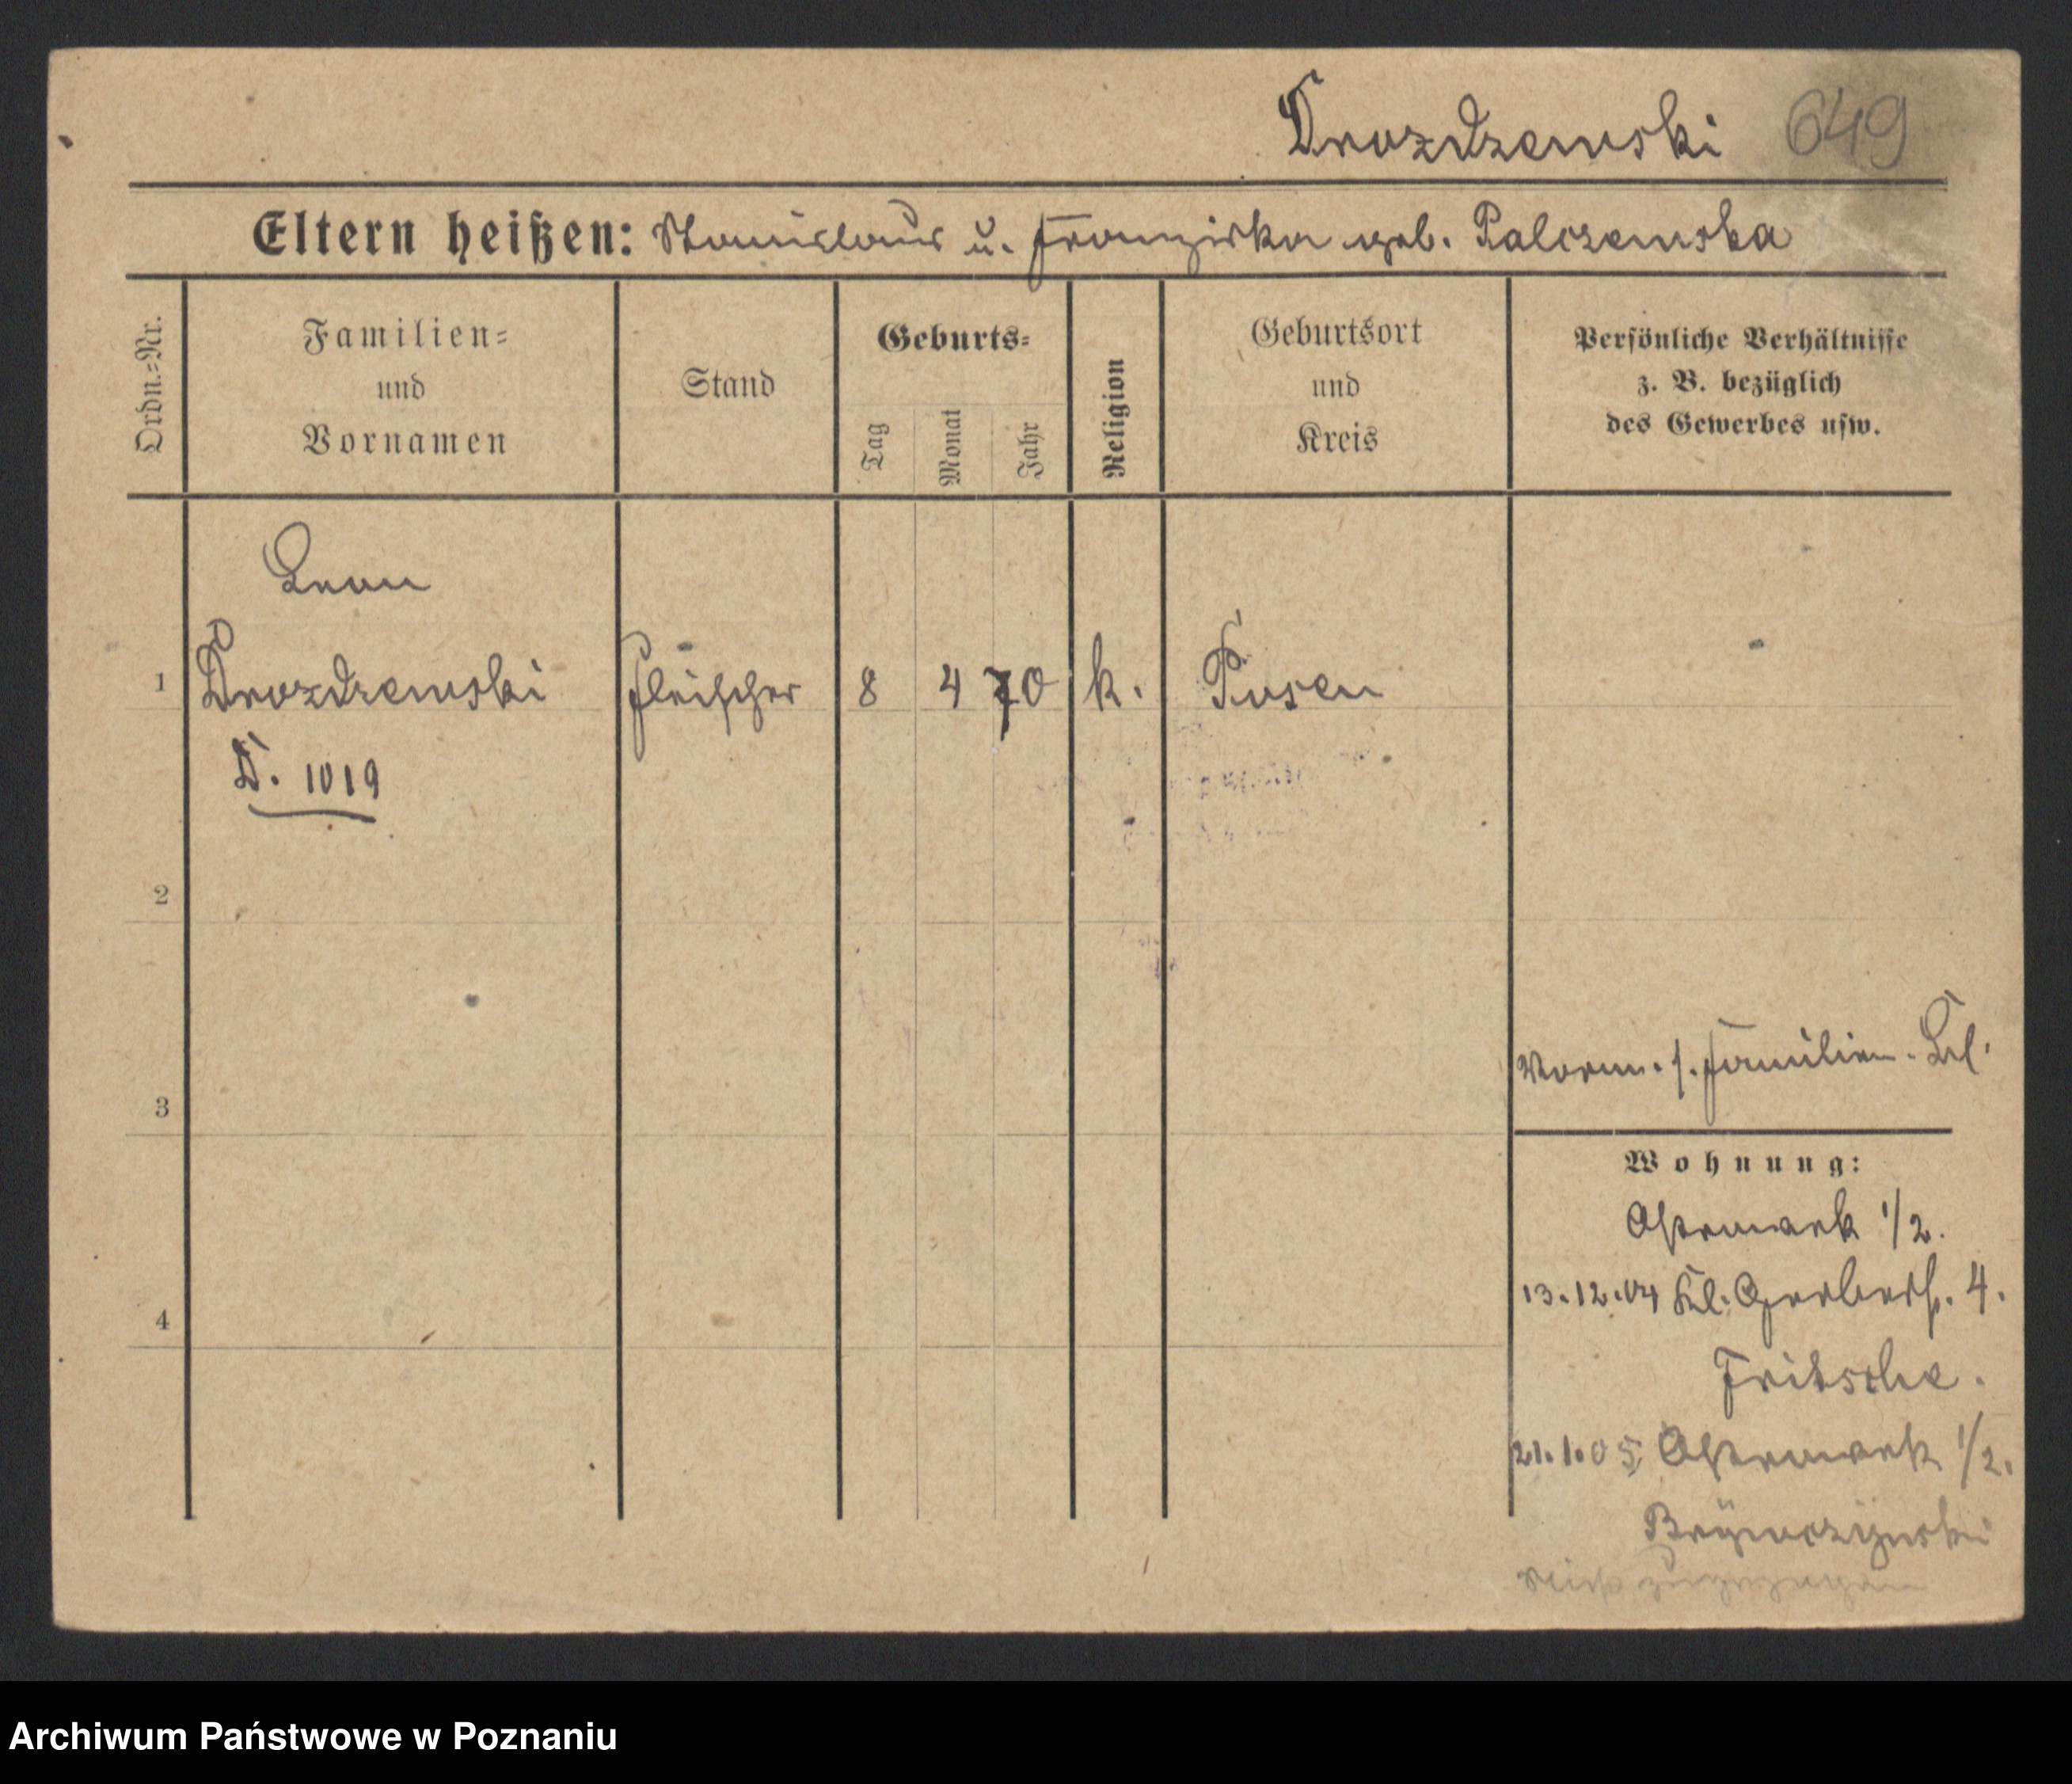 Drozdzewski 649
Eltern heißen: Stanislaus u. Franziska geb. Palczewska
Ordn.=Nr.
Familien=
und
Vornamen
Stand
Geburts=
Tag
Monat
Jahr
Religion
Geburtsort
und
Kreis
Persönliche Verhältnisse
z. B. bezüglich
des Gewerbes usw.
Leon
1 Drozdzewski Fleischer 8 4 70 k. Posen
D. 1019
2
3
4
Verm. s. Familien-Bl.
Wohnung:
Ostrowek 1/2.
13.12.04 Kl. Gerberstr. 4.
Fritsche.
21.1.05 Ostrowek 1/2.
nicht zugezogen
Archiwum Państwowe w Poznaniu